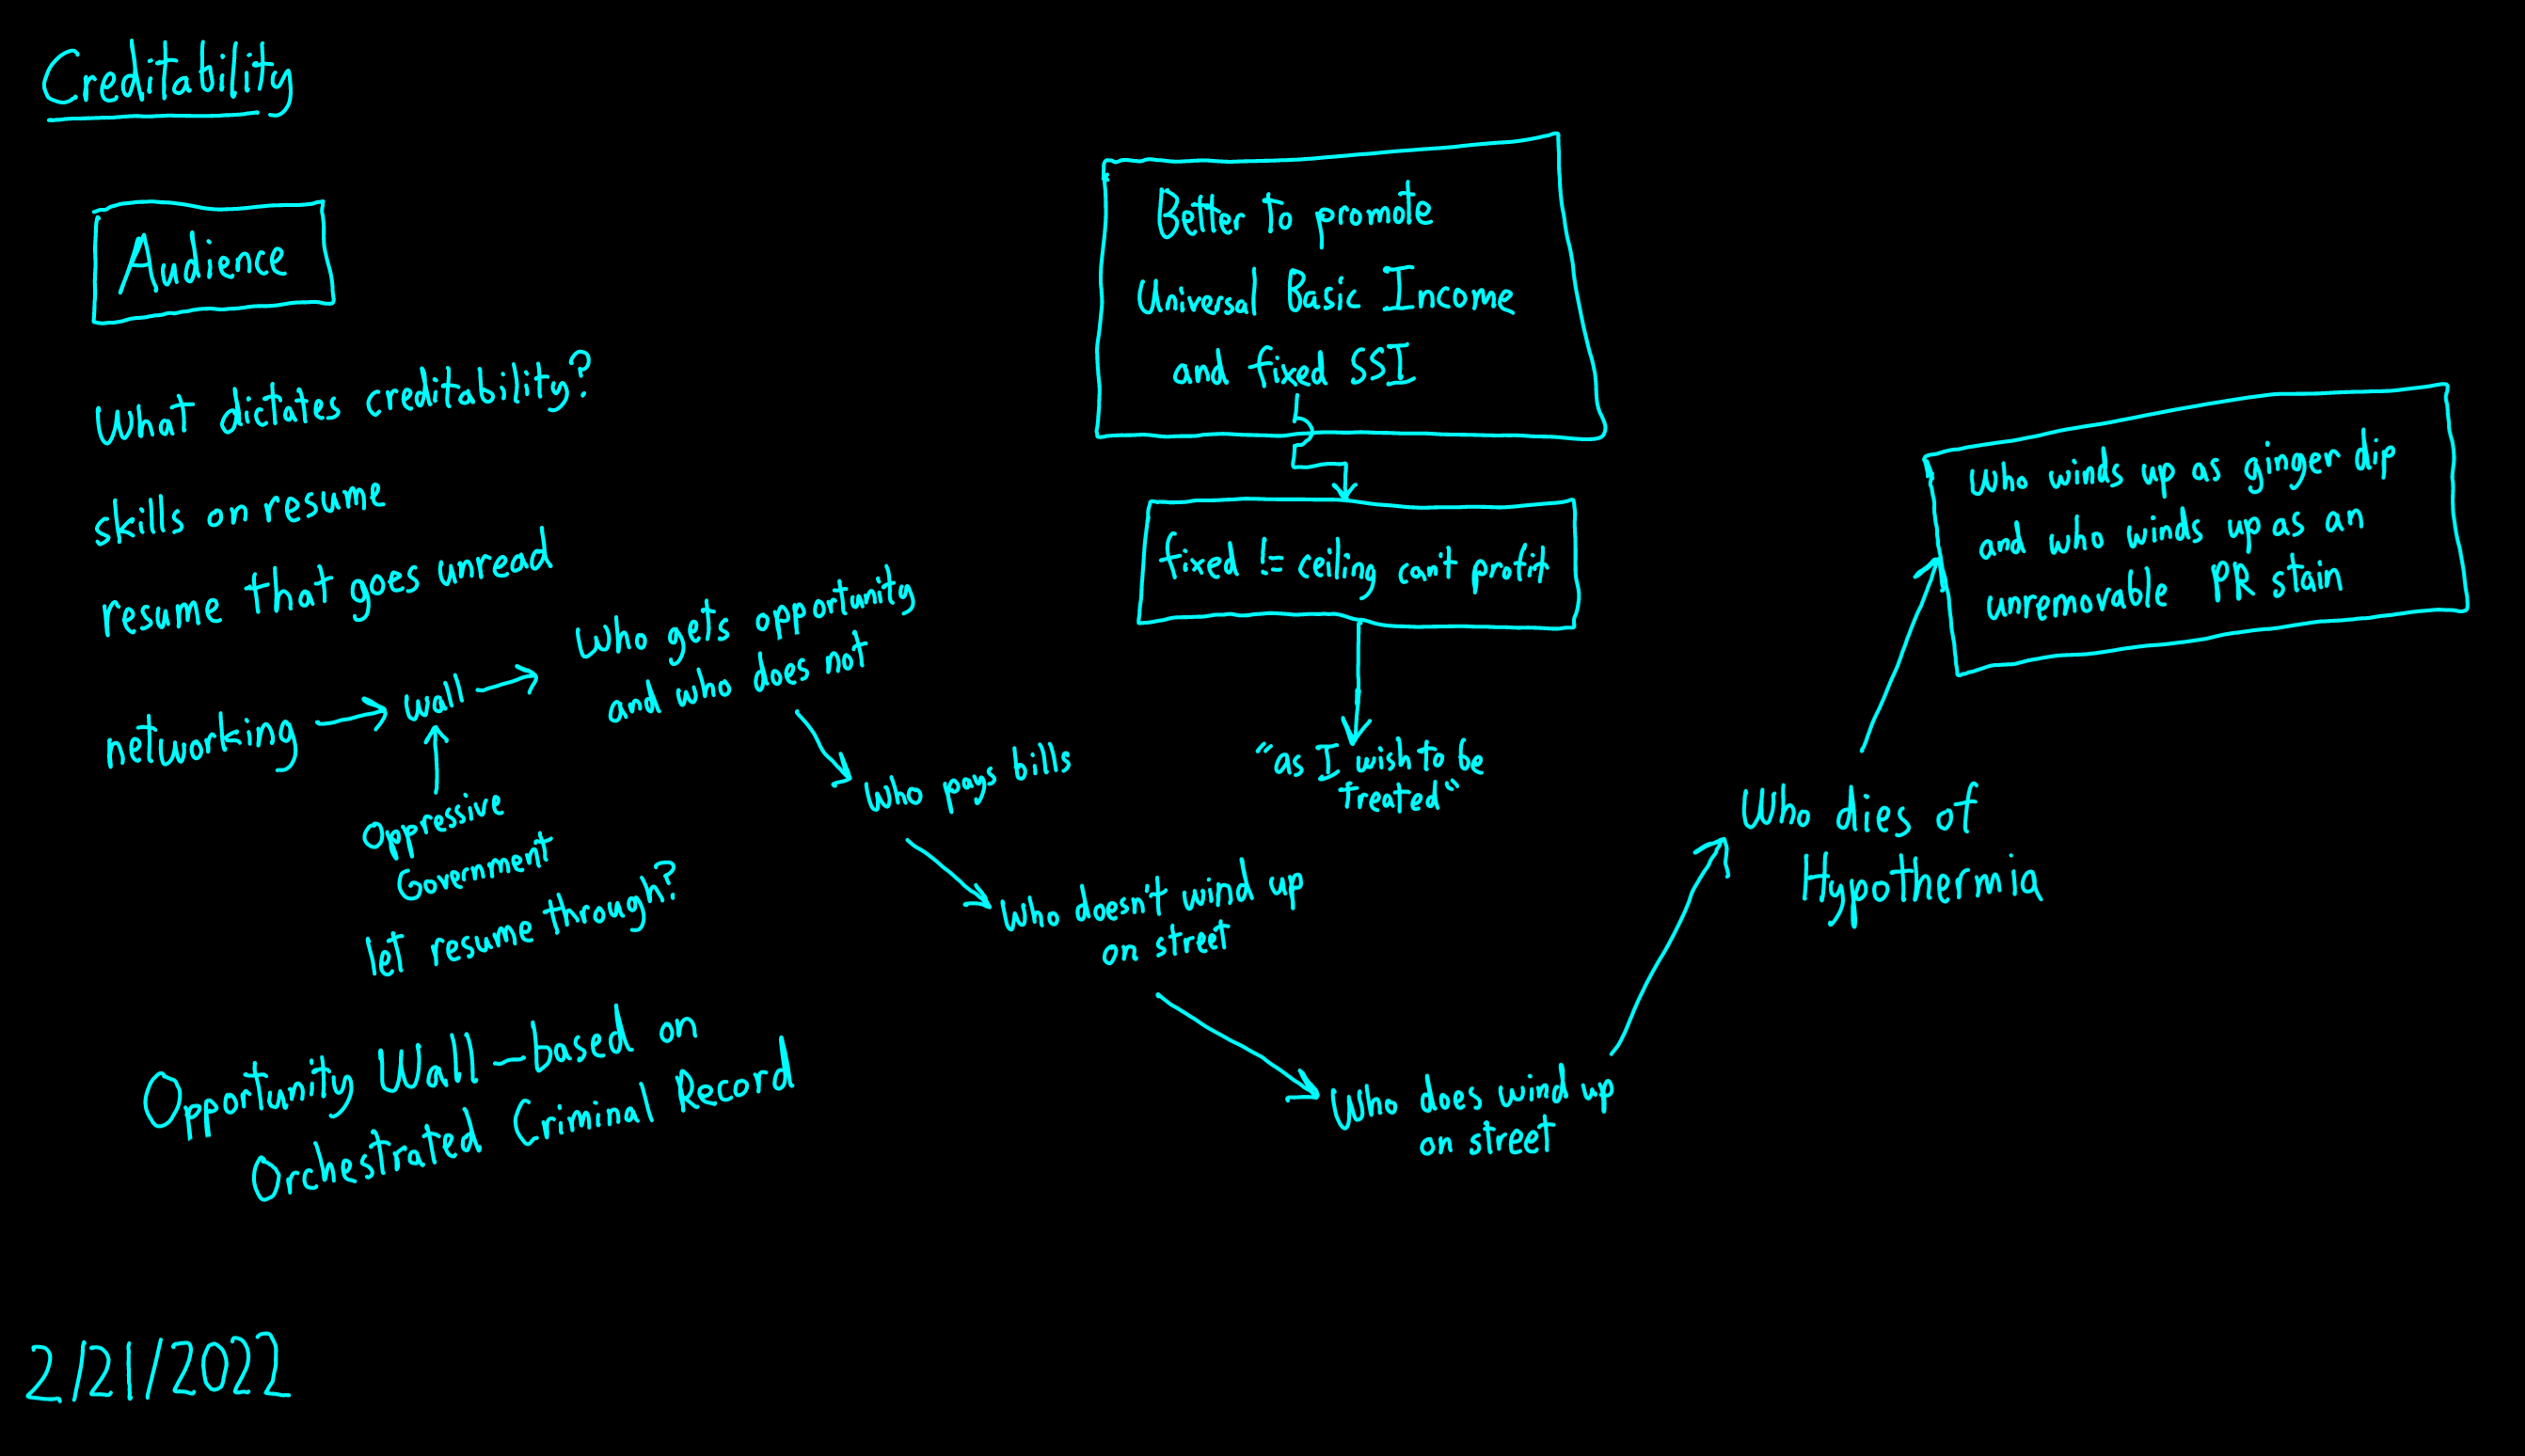 Creditability
Audience
What dictates creditability?
skills on resume
resume that goes unread
networking → wall →
Who gets opportunity
and who does not
Oppressive
Government
let resume through?
Opportunity Wall – based on
Orchestrated Criminal Record
Who pays bills
Who doesn't wind up
on street
Who does wind up
on street
Who dies of
Hypothermia
Who winds up as ginger dip
and who winds up as an
unremovable PR stain
Better to promote
Universal Basic Income
and fixed SSI
fixed != ceiling can't profit
"as I wish to be
treated"
2/21/2022